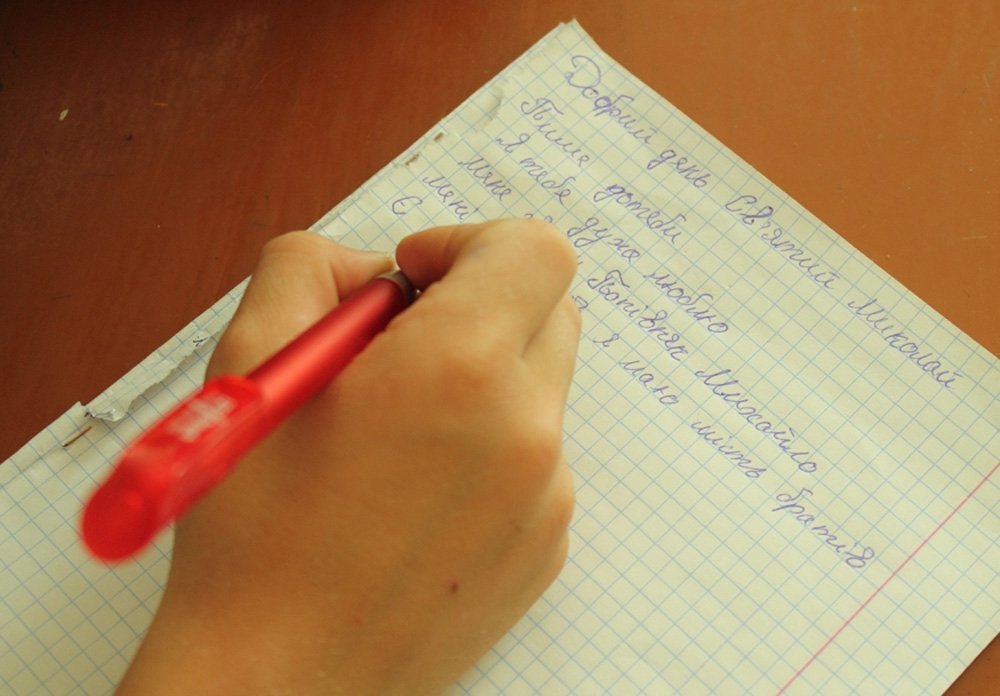 Добрий день Св'ятий Миколай
Пише дотеби
Я тебе дуже люблю
мене Попівняк Михайло
мені 7 я маю шість братів
Є